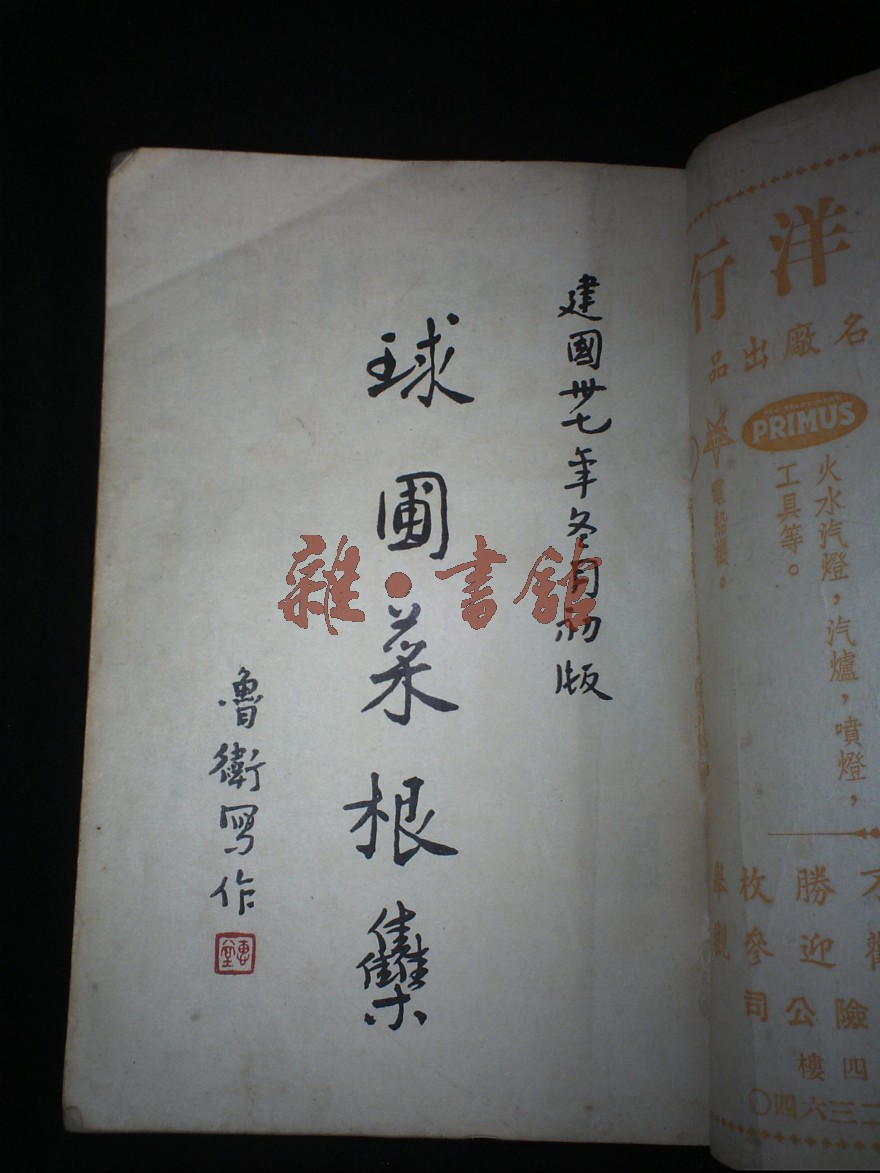 建國卅七年冬月初版
球圃菜根集
魯衛寫作
雜·書館
洋行
名廠出品
PRIMUS
火水汽燈，汽爐，噴燈，
工具等。
勝枚
歡迎參觀
險公司
四樓
二三六四〇